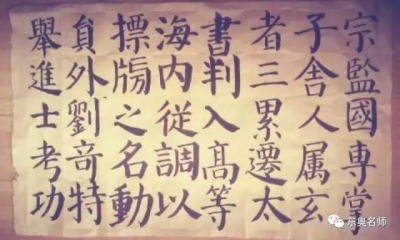 舉進士考功
員外劉竒特
摽牓之名動
海内從調以
書判入髙等
者三累遷太
子舍人属玄
宗監國專掌
东奥名师